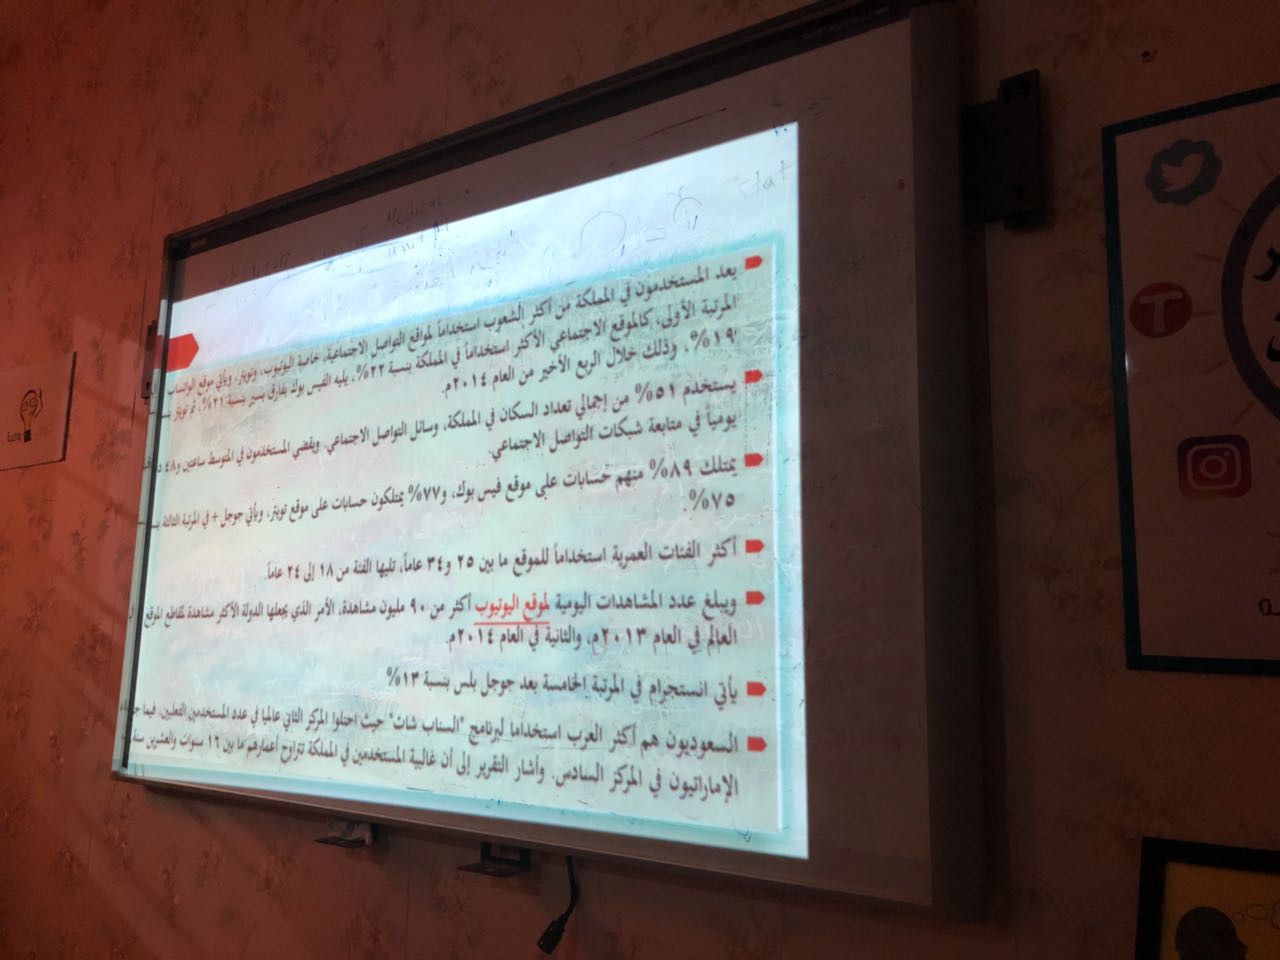 Medical
stat
يعد المستخدمون في المملكة من أكثر الشعوب استخداماً لمواقع التواصل الاجتماعية، خاصة اليوتيوب، وتويتر. ويأتي موقع الواتساب
المرتبة الأولى، كالموقع الاجتماعي الأكثر استخداماً في المملكة بنسبة ٢٢%، يليه الفيس بوك بفارق يسير بنسبة ٢١%، ثم تويتر
١٩%، وذلك خلال الربع الأخير من العام ٢٠١٤م.
يستخدم ٥١% من إجمالي تعداد السكان في المملكة، وسائل التواصل الاجتماعي. ويقضي المستخدمون في المتوسط ساعتين و٤٨
يومياً في متابعة شبكات التواصل الاجتماعي.
يمتلك ٨٩% منهم حسابات على موقع فيس بوك، و٧٧% يمتلكون حسابات على موقع تويتر، ويأتي جوجل + في المرتبة الثالثة
٧٥%.
أكثر الفئات العمرية استخداماً للموقع ما بين ٢٥ و٣٤ عاماً، تليها الفئة من ١٨ إلى ٢٤ عاماً.
ويبلغ عدد المشاهدات اليومية لموقع اليوتيوب أكثر من ٩٠ مليون مشاهدة، الأمر الذي يجعلها الدولة الأكثر مشاهدة لمقاطع الموقع
العالم في العام ٢٠١٣م، والثانية في العام ٢٠١٤م.
يأتي انستجرام في المرتبة الخامسة بعد جوجل بلس بنسبة ١٣%
السعوديون هم أكثر العرب استخداما لبرنامج "السناب شات" حيث احتلوا المركز الثاني عالميا في عدد المستخدمين الفعليين، فيما
الإماراتيون في المركز السادس. وأشار التقرير إلى أن غالبية المستخدمين في المملكة تتراوح أعمارهم ما بين ١٦ سنوات والعشرين سنة